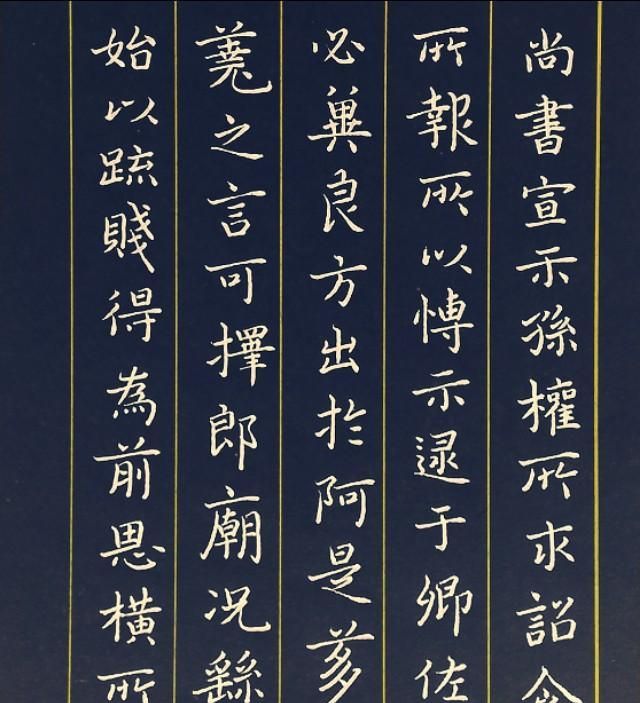 尚書宣示孫權所求詔令
所報所以博示逮于卿佐
必冀良方出於阿是芻
蕘之言可擇郎廟況繇
始以疏賤得為前恩橫所